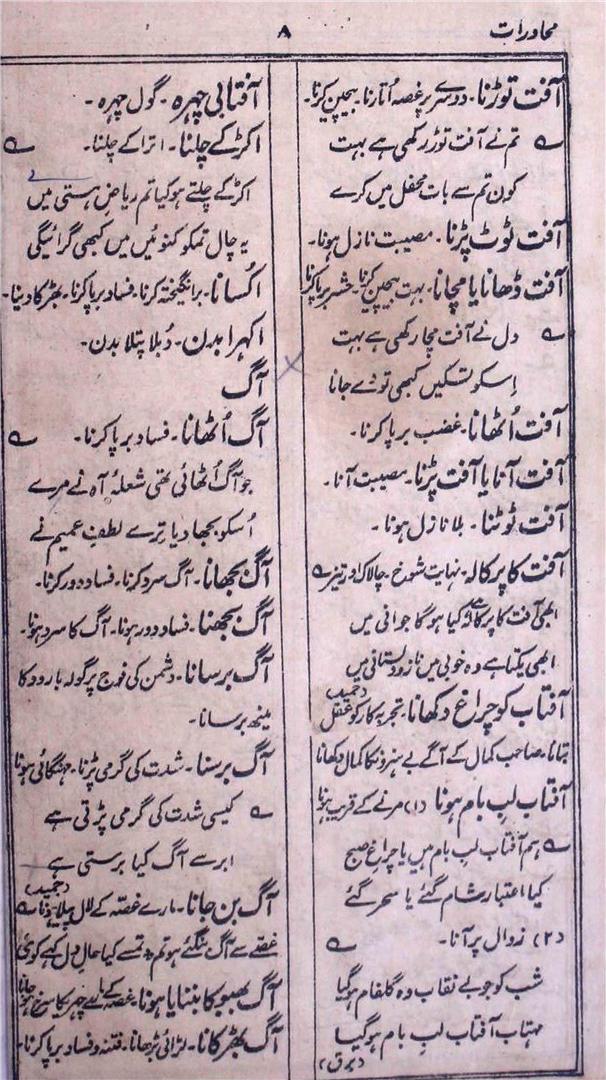 محاورات
۸
آفت توڑنا۔ دوسرے پر غصہ اُتارنا۔ بیچین کرنا۔
؎ تم نے آفت توڑ رکھی ہے بہت
کون تم سے بات محفل میں کرے
آفت ٹوٹ پڑنا۔ مصیبت نازل ہونا۔
آفت ڈھانا یا مچانا۔ بہت بیچین کرنا۔ حشر برپا کرنا
؎ دل نے آفت مچا رکھی ہے بہت
اِسکو تسکیں کبھی تو دے جانا
آفت اُٹھانا۔ غضب برپا کرنا۔
آفت آنا یا آفت پڑنا۔ مصیبت آنا۔
آفت ٹوٹنا۔ بلا نازل ہونا۔
آفت کا پرکالہ۔ نہایت شوخ۔ چالاک اور تیز ؎
ابھی آفت کا پرکالہ ہے کیا ہوگا جوانی میں
ابھی یکتا ہے وہ خوبی میں ناز و دلستانی میں
آفتاب کو چراغ دکھانا۔ تجربہ کار کو عقل
بتانا۔ صاحب کمال کے آگے بے ہنر ونکا کمال دکھانا
آفتاب لبِ بام ہونا (۱) مرنے کے قریب ہونا
؎ ہم آفتاب لبِ بام ہیں یا چراغِ صبح
کیا اعتبار شام گئے یا سحر گئے
(۲) زوال پر آنا۔ ؎
شب کو جو بے نقاب وہ گلفام ہوگیا
مہتاب آفتاب لبِ بام ہوگیا
(برق)
آفتابی چہرہ۔ گول چہرہ۔
اکڑ کے چلنا۔ اترا کے چلنا۔ ؎
اکڑ کے چلتے ہو کیا تم ریاضِ ہستی میں
یہ چال تمکو کنوئیں میں کبھی گرائیگی
اکسانا۔ برانگیختہ کرنا۔ فساد برپا کرنا۔ بھڑکا دینا۔
اکہرا بدن۔ دُبلا پتلا بدن۔
آگ
آگ اُٹھانا۔ فساد برپا کرنا۔ ؎
جو آگ اُٹھائی تھی شعلۂ آہ نے مرے
اُسکو بجھا دیا تِرے لطفِ عمیم نے
آگ بجھانا۔ آگ سرد کرنا۔ فساد دور کرنا۔
آگ بجھنا۔ فساد دور ہونا۔ آگ کا سرد ہونا۔
آگ برسانا۔ دشمن کی فوج پر گولہ بارود کا
مینھ برسانا۔
آگ برسنا۔ شدت کی گرمی پڑنا۔ مہنگائی ہونا
؎ کیسی شدت کی گرمی پڑتی ہے
ابر سے آگ کیا برستی ہے
آگ بن جانا۔ مارے غصّہ کے لال پیلا ہونا ؎
غصّے سے آگ بنگئے ہو تم، تمسے کیا حالِ دل کہے کوئی
آگ بھبوکا بننا یا ہونا۔ غصہ کے مارے چہرے کا سرخ ہو جانا
آگ بھڑکانا۔ لڑائی بڑھانا۔ فتنہ و فساد برپا کرنا۔